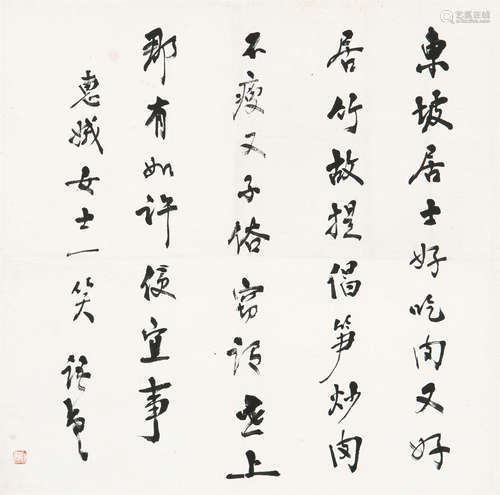 東坡居士好吃肉又好
居竹故提倡笋炒肉
不瘦又不俗窃谓世上
那有如许便宜事
惠娥女士一笑